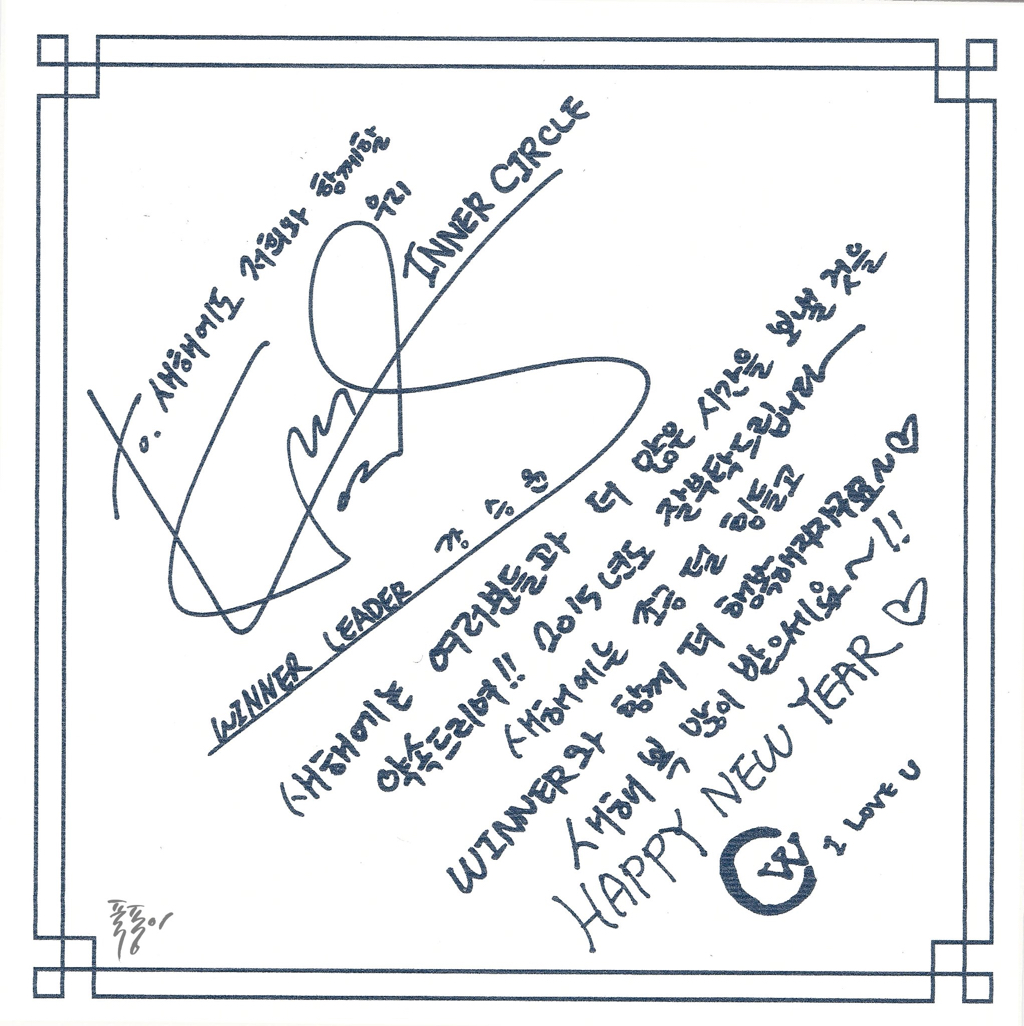 To. 새해에도 저희와 함께할
우리
INNER CIRCLE
WINNER LEADER 강승윤
새해에는 여러분들과 더 많은 시간을 보낼 것을
약속드리며!! 2015년도 잘부탁드립니다
새해에는 조금 덜 힘들고
WINNER와 함께 더 행복해지자구요~♡
새해 복 많이 받으세요~!!
HAPPY NEW YEAR ♡
W I LOVE U